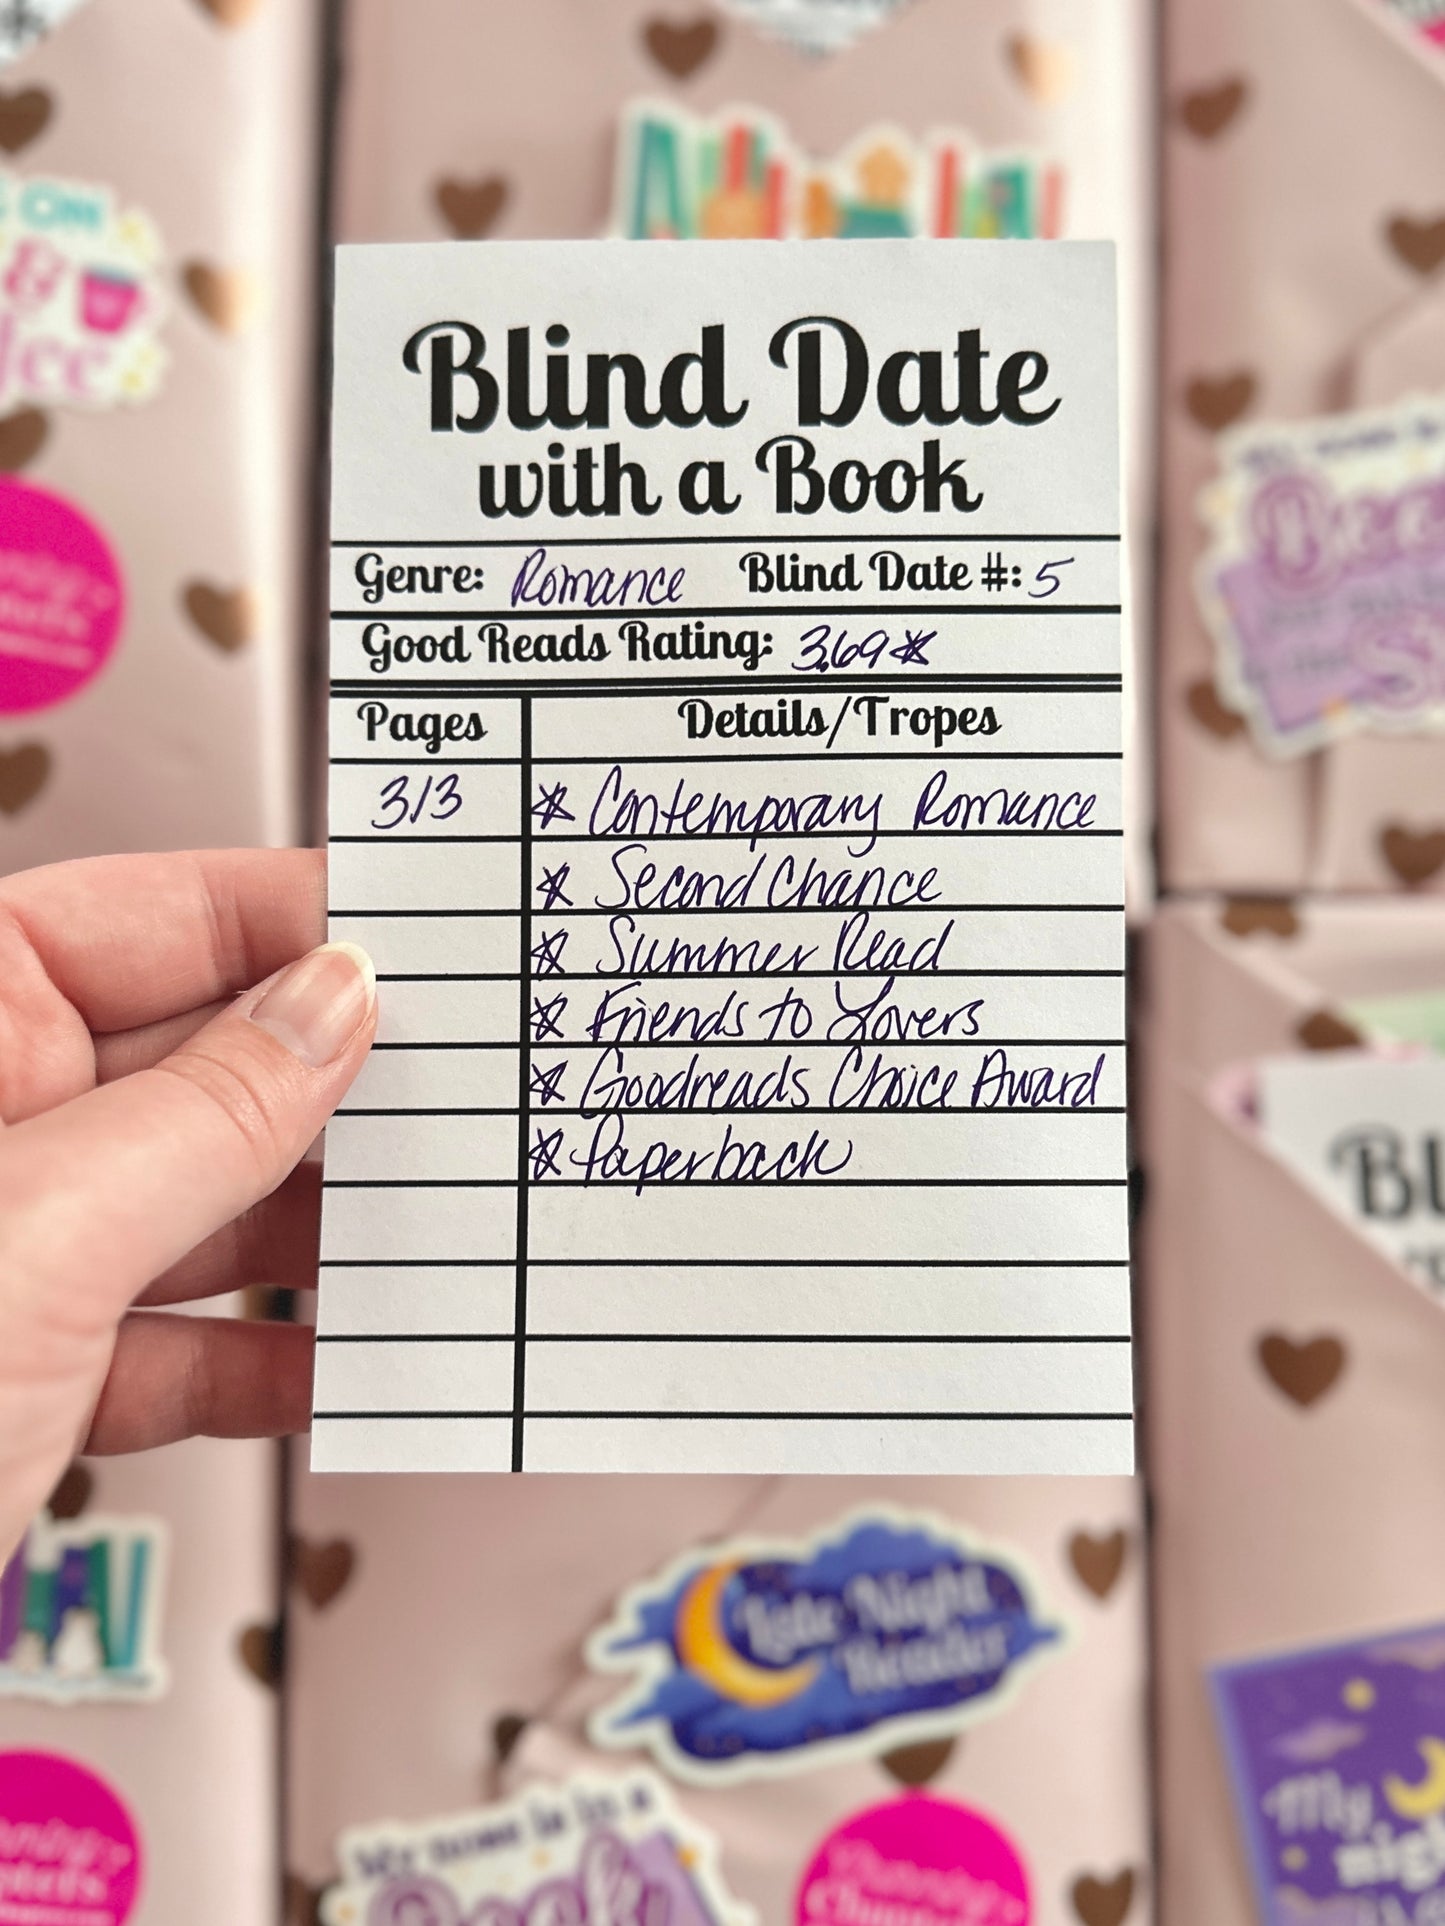 ON
&
Blind Date
with a Book
Genre: Romance Blind Date #: 5
Good Reads Rating: 3.69☆
Pages Details/Tropes
313 ☆ Contemporary Romance
☆ Second Chance
☆ Summer Read
☆ Friends to Lovers
☆ Goodreads Choice Award
☆ Paperback
Late Night
Reader
My nose is in a
Book
My